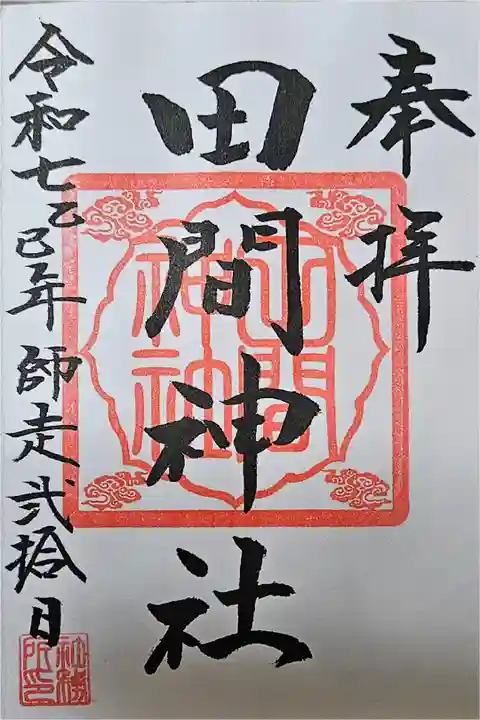 奉拝
田間神社
田間神社
令和七乙巳年師走弐拾日
社務所印